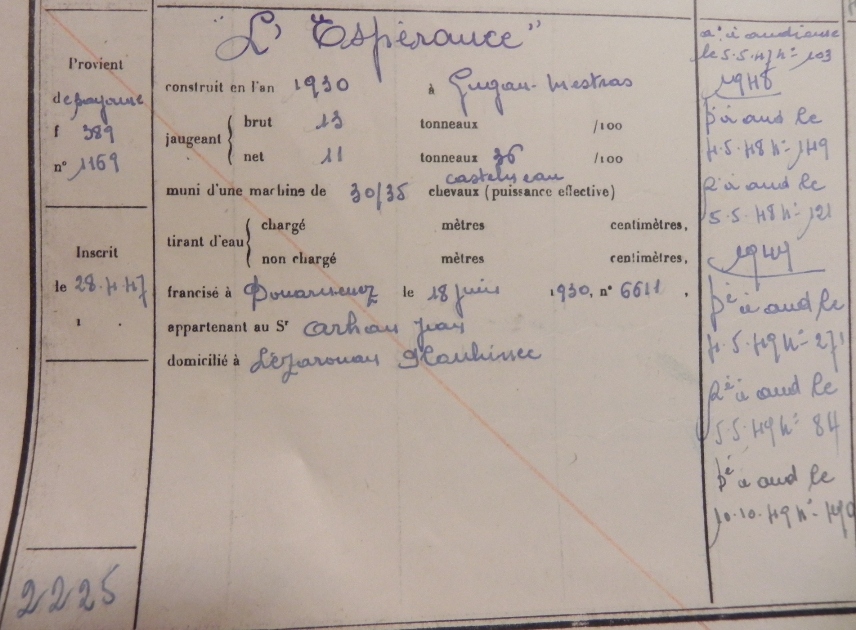 Provient
de Bayonne
f 389
n° 1169
Inscrit
le 28.4.47
2225
"L'Espérance"
construit en l'an 1930 à Gujan-Mestras
jaugeant
brut 13 tonneaux /100
net 11 tonneaux 36 /100
muni d'une machine de 30/35 chevaux (puissance effective)
tirant d'eau
chargé mètres centimètres,
non chargé mètres centimètres,
francisé à Douarnenez le 18 juin 1930, n° 6611,
appartenant au Sr Arhan Jean
domicilié à Lézarouan Plouhinec
à audierne
le 5.5.47 n° 103
1948
à aud le
4.5.48 n° 149
à aud le
5.5.48 n° 121
à aud le
4.5.49 n° 271
à aud le
5.5.49 n° 84
à aud le
10.10.49 n°